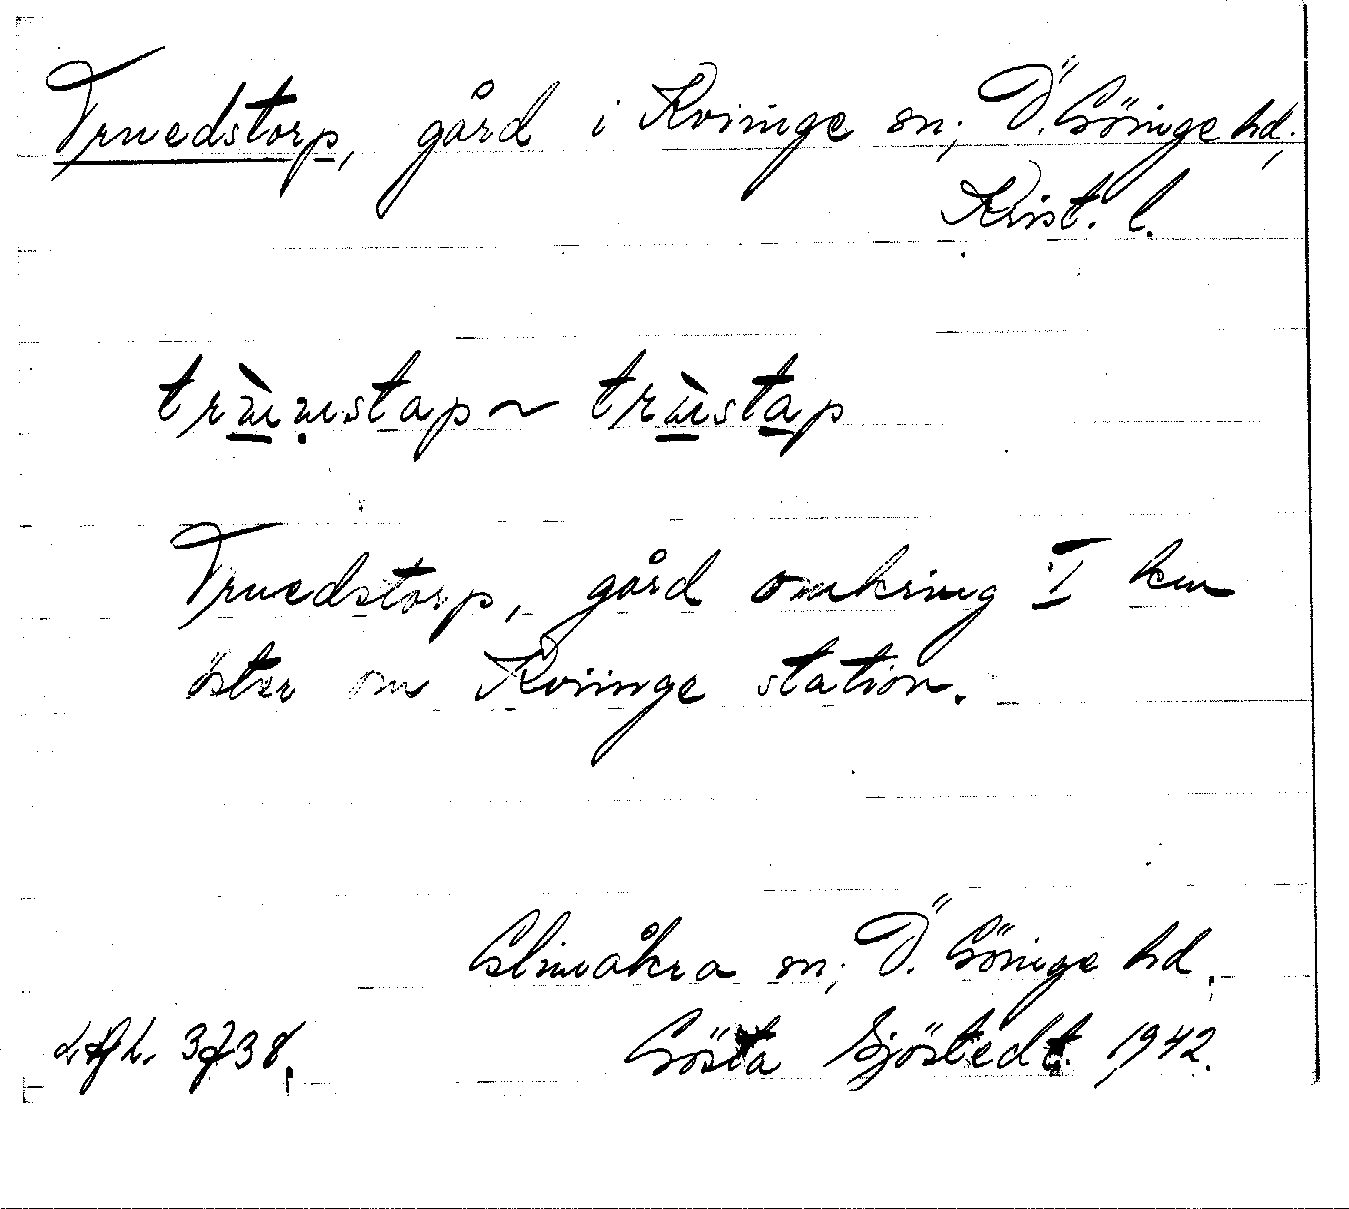 Truedstorp, gård i Kviinge sn; Ö. Göinge hd;
Krist. l.
Truedstorp, gård omkring 1 km
öster om Kviinge station.
Glimåkra sn; Ö. Göinge hd.
Gösta Sjöstedt. 1942.